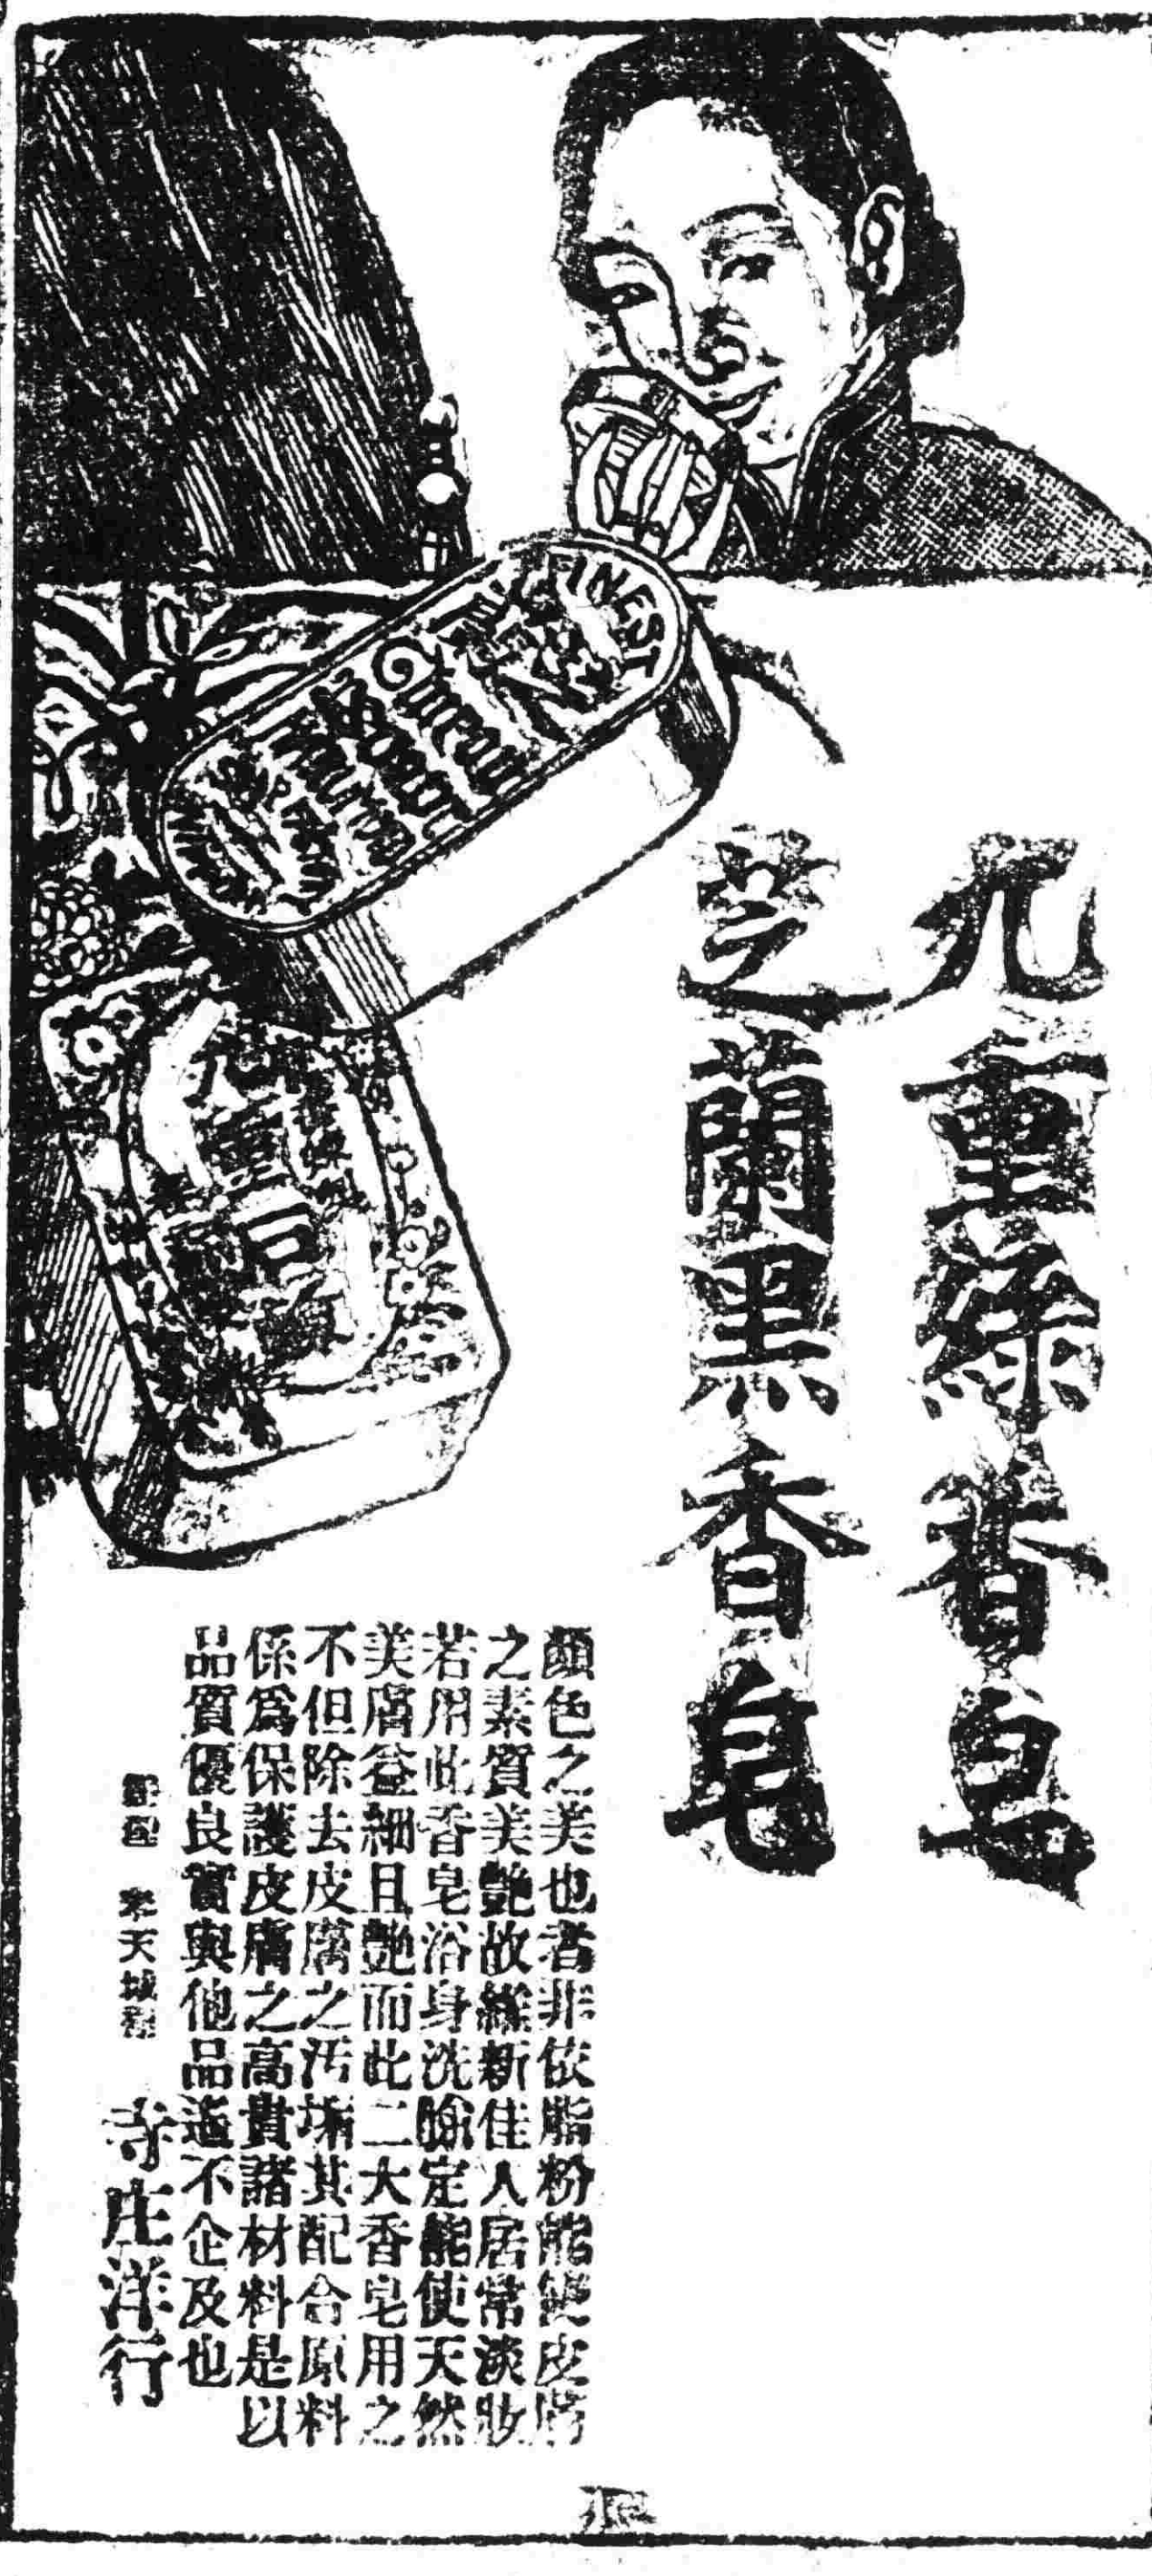 九重綠香皂
芝蘭黑香皂
顏色之美也者非依脂粉能使皮膚
之素質美艶故維新佳人居常淡妝
若用此香皂浴身洗臉定能使天然
美膚益細且艶而此二大香皂用之
不但除去皮膚之汚垢其配合原料
係爲保護皮膚之高貴諸材料是以
品質優良實與他品遙不企及也
奉天城
寺庄洋行
FINEST
九重
石鹼